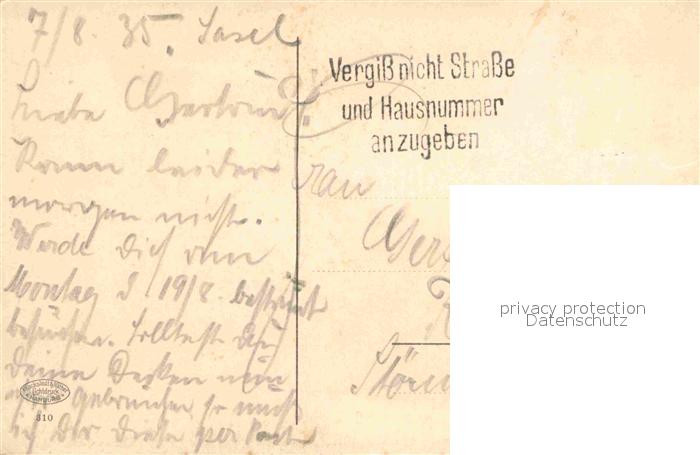 7/8. 35. Sasel
Liebe Gertrud!
Kann leider
morgen nicht.
Werde Dich am
Montag d 19/8. bestimmt
besuchen. Solltest Du
Deine Decken
gebrauchen so
Dir diese per
310
Vergiß nicht Straße
und Hausnummer
anzugeben
Frau
privacy protection
Datenschutz